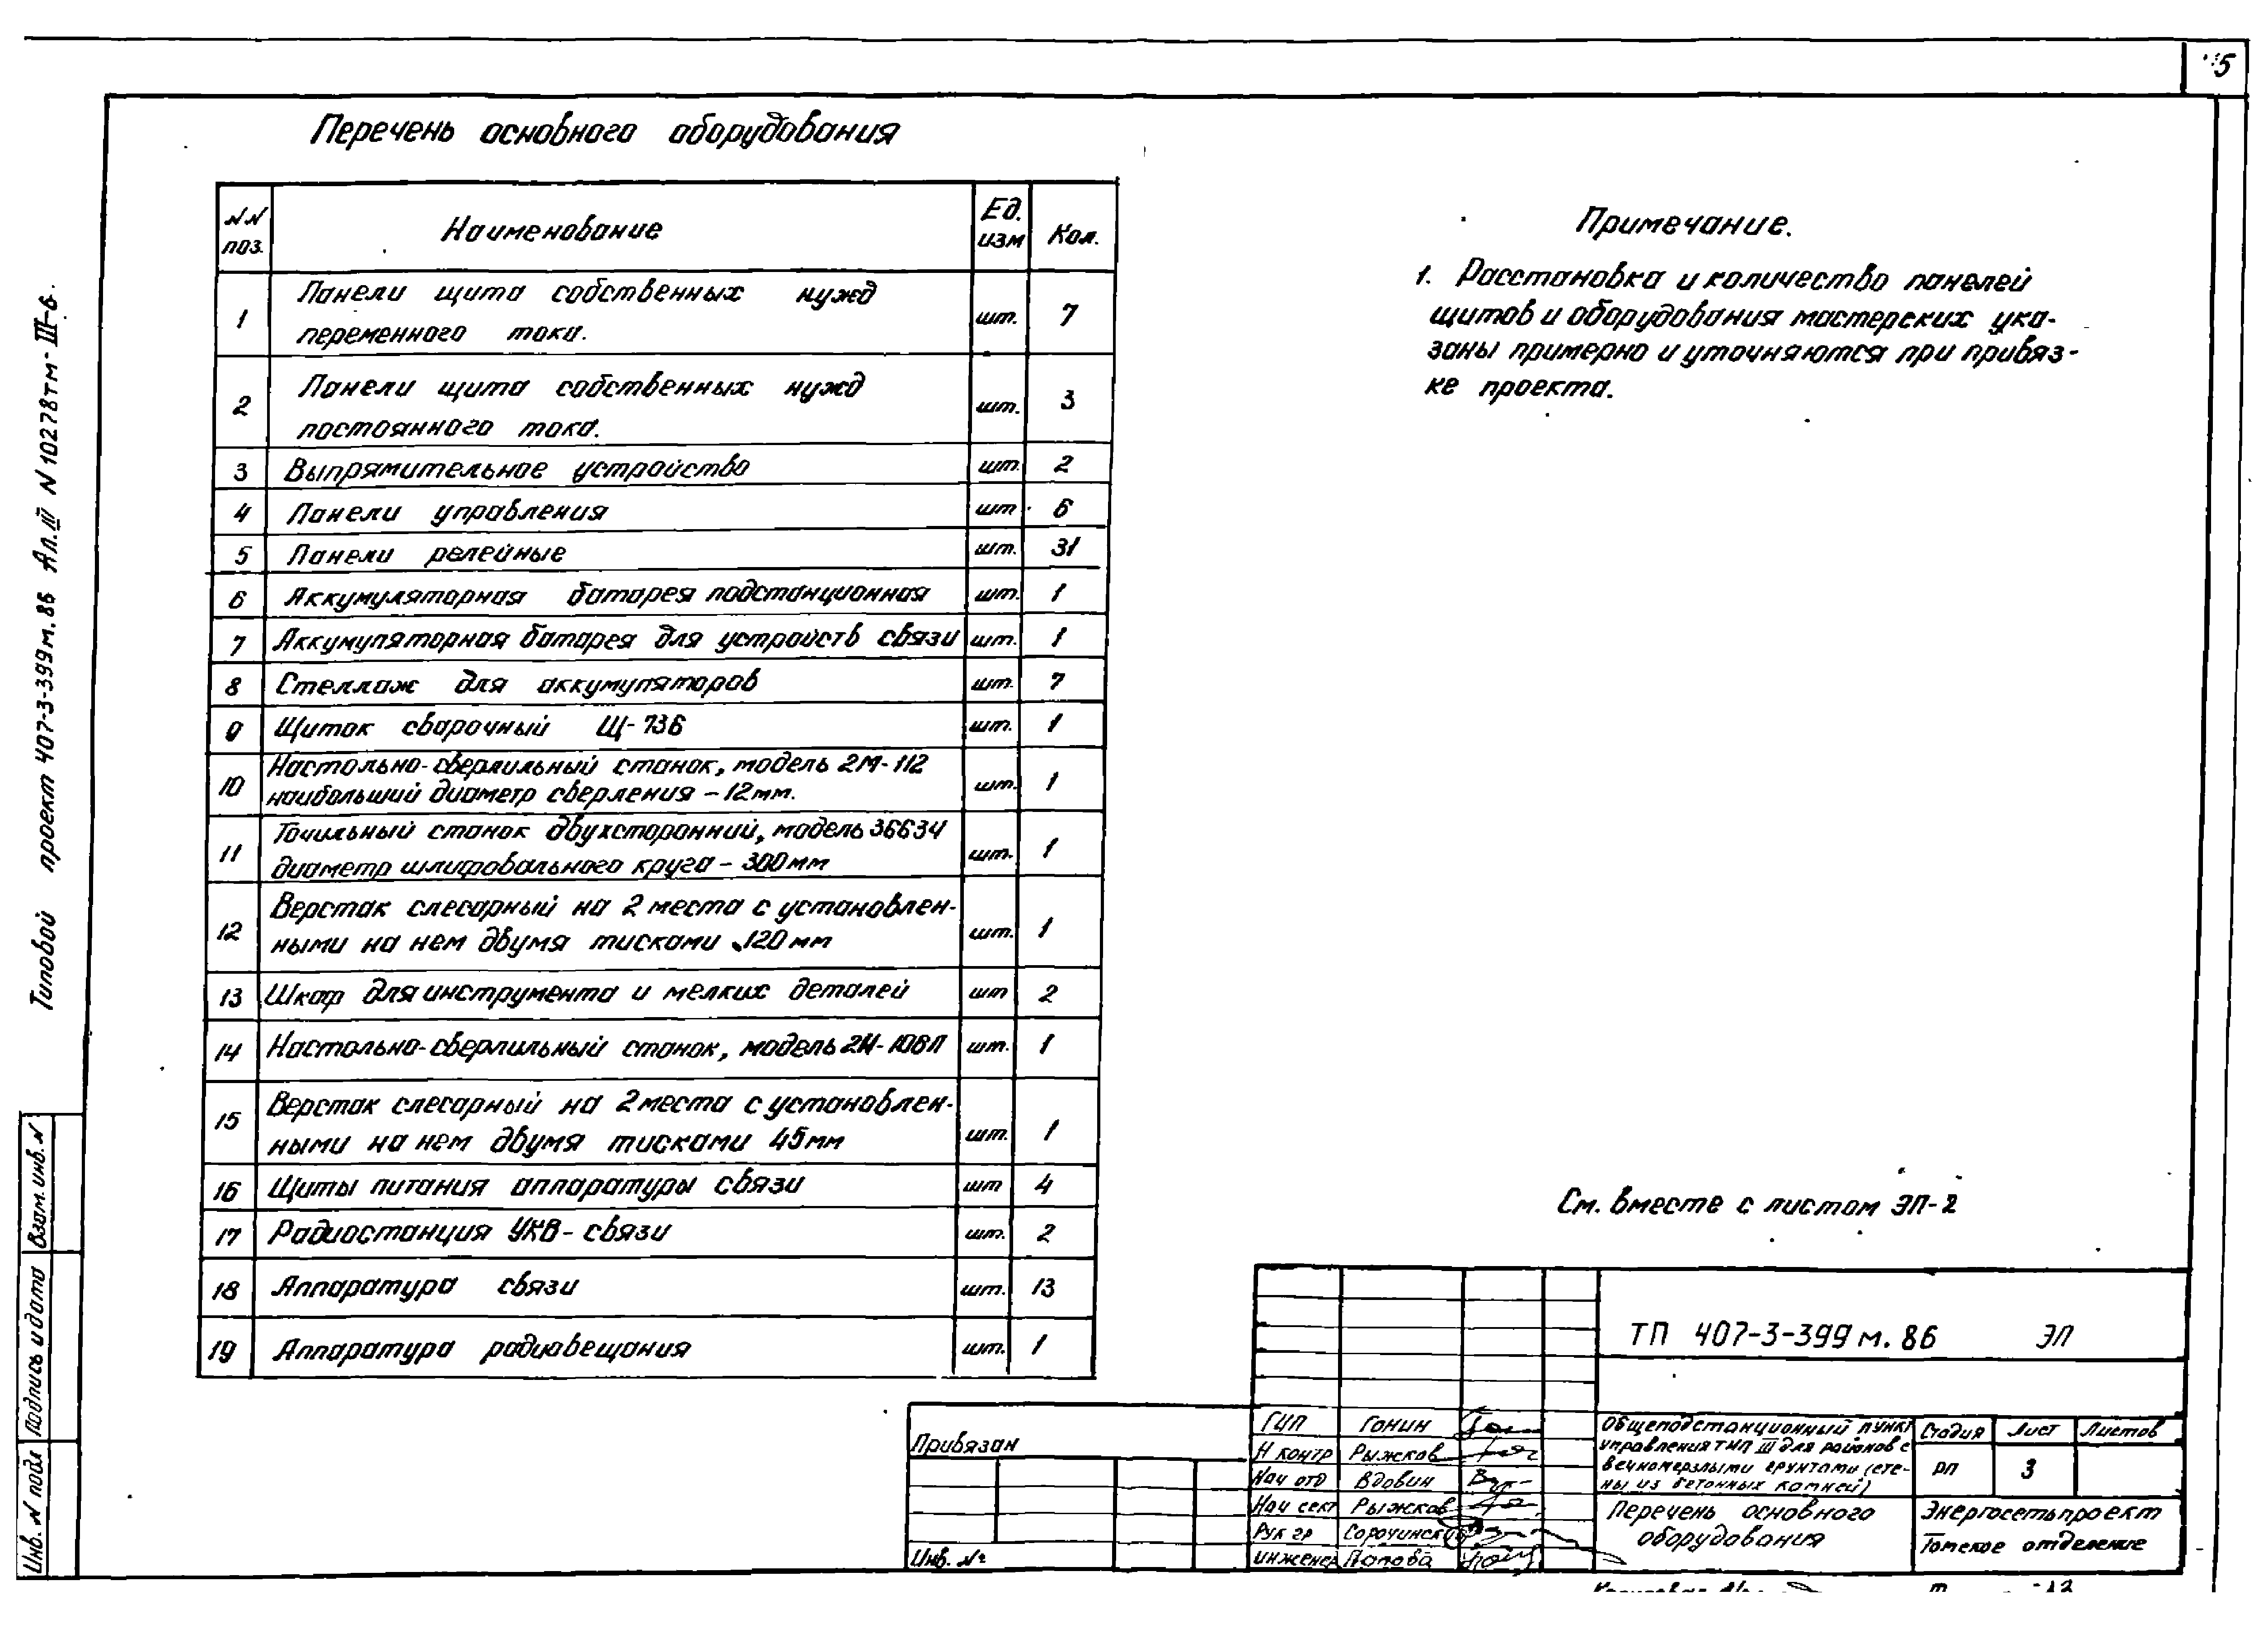 5
Перечень основного оборудования
NN поз. Наименование Ед. изм Кол.
1 Панели щита собственных нужд
переменного тока. шт. 7
2 Панели щита собственных нужд
постоянного тока. шт. 3
3 Выпрямительное устройство шт. 2
4 Панели управления шт. 6
5 Панели релейные шт. 31
6 Аккумуляторная батарея подстанционная шт. 1
7 Аккумуляторная батарея для устройств связи шт. 1
8 Стеллаж для аккумуляторов шт. 7
9 Щиток сварочный Щ-736 шт. 1
10 Настольно-сверлильный станок, модель 2М-112
наибольший диаметр сверления – 12мм. шт. 1
11 Точильный станок двухсторонний, модель 36634
диаметр шлифовального круга – 300мм шт. 1
12 Верстак слесарный на 2 места с установлен-
ными на нем двумя тисками 120мм шт. 1
13 Шкаф для инструмента и мелких деталей шт 2
14 Настольно-сверлильный станок, модель шт. 1
15 Верстак слесарный на 2 места с установлен-
ными на нем двумя тисками 45мм шт. 1
16 Щиты питания аппаратуры связи шт 4
17 Радиостанция УКВ-связи шт. 2
18 Аппаратура связи шт. 13
19 Аппаратура радиовещания шт. 1
Примечание.
1. Расстановка и количество панелей
щитов и оборудования мастерских ука-
заны примерно и уточняются при привяз-
ке проекта.
См. вместе с листом ЭП-2
Типовой проект 407-3-399м.86 Ал.III N10278тм-III-6
Взам. инв. N
Подпись и дата
Инв. N подл
Привязан
Инв. №
ТП 407-3-399м.86 ЭП
ГИП Гонин
Н контр Рыжков
Нач отд Вдовин
Нач сект Рыжков
Рук гр Сорочинский
инженер Попова
Общеподстанционный пункт
управления тип III для районов с
вечномерзлыми грунтами (сте-
ны из бетонных камней)
Стадия Лист Листов
РП 3
Перечень основного
оборудования
Энергосетьпроект
Томское отделение